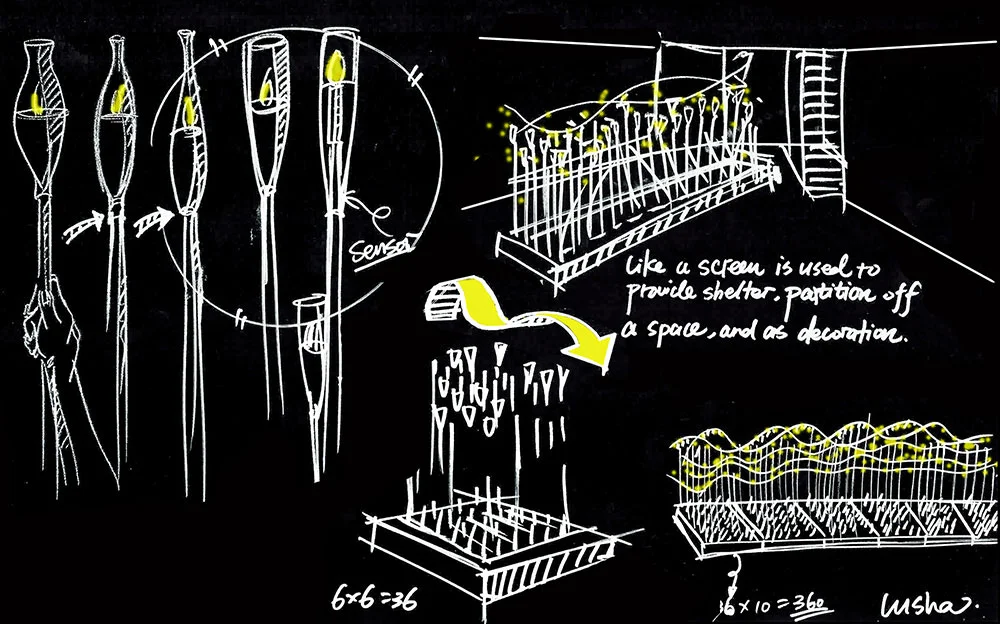 Sensor
Like a screen is used to
provide shelter, partition off
a space, and as decoration.
6×6=36
36×10=360